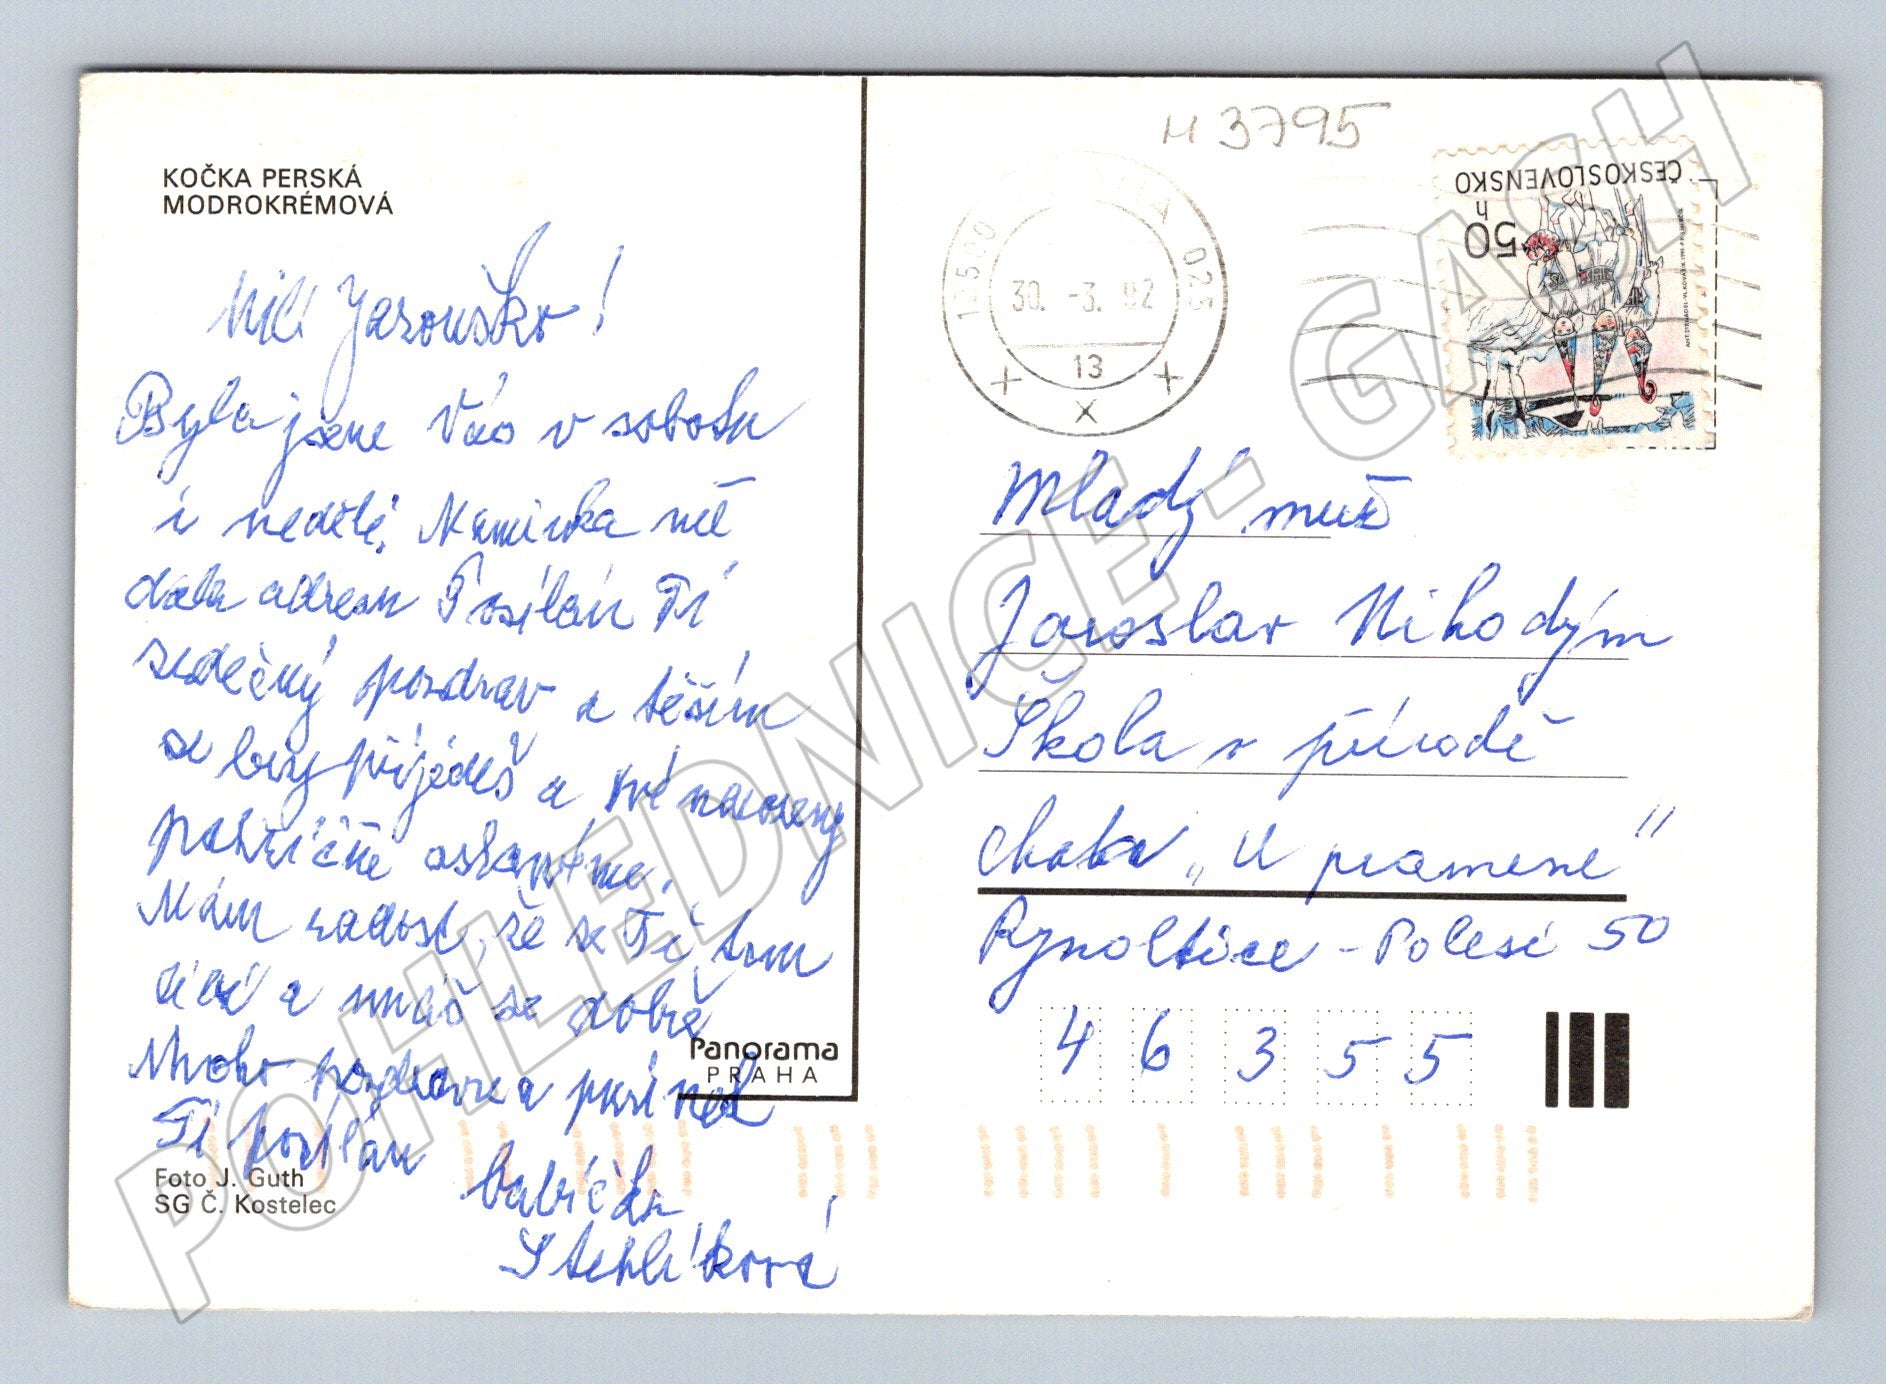 KOČKA PERSKÁ
MODROKRÉMOVÁ
Milí Jaroušku!
Byla jsme Vás v sobotu
i neděli. Maminka mě
dala adresu Posílám Ti
srdečný pozdrav a těším
se brzy přijedeš a tvé narozeny
patřičně oslavíme.
Mám radost, že se Ti tam
líbí a máš se dobře
Mnoho pozdravu a pusinek
Ti posílám babička
Stehlíková
Panorama
PRAHA
Foto J. Guth
SG Č. Kostelec
M 3795
025
30. -3. 92
13
X
ČESKOSLOVENSKO
50
h
Mladý muž
Jaroslav Nikodým
Škola v přírodě
chata „U pramene"
Rynoltice - Polesí 50
46355
POHLEDNICE - GASH